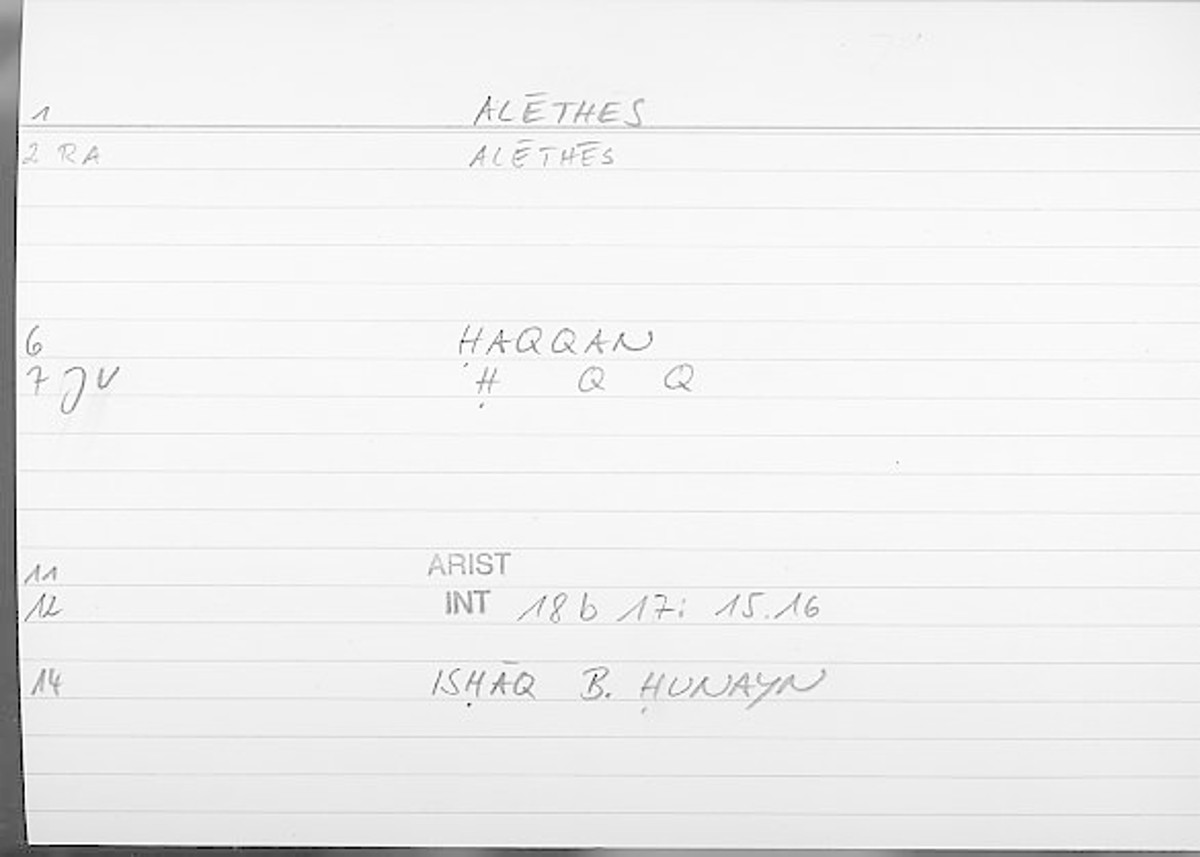 1 ALĒTHES
2 RA ALĒTHĒS
6 ḤAQQAN
7 JV Ḥ Q Q
11 ARIST
12 INT 18b 17: 15.16
14 ISḤĀQ B. ḤUNAYN